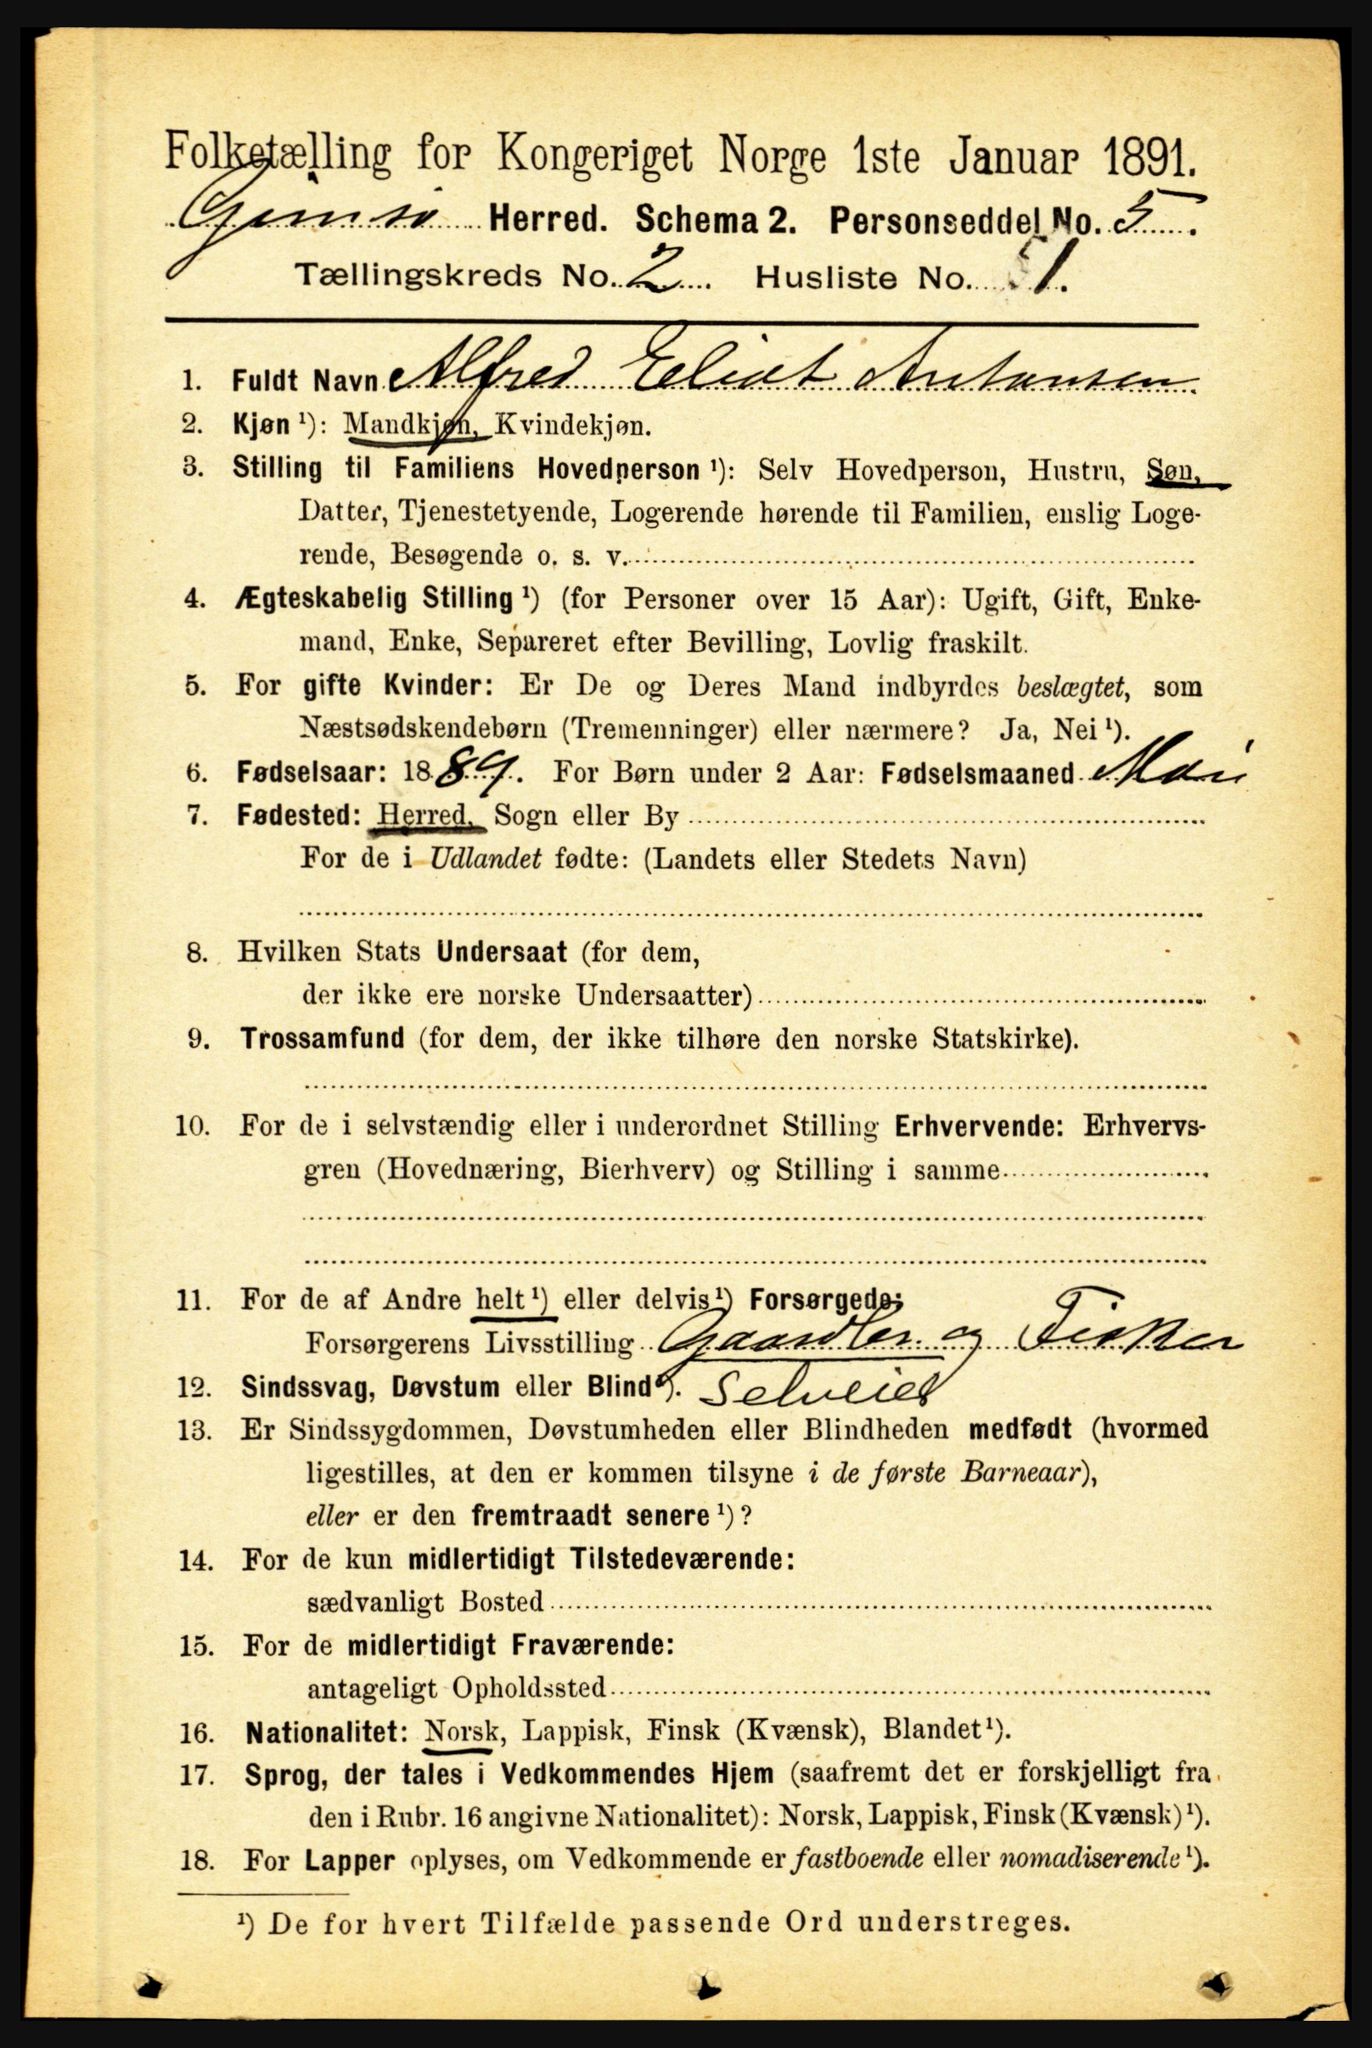 Folketælling for Kongeriget Norge 1ste Januar 1891.
Gimsø Herred. Schema 2. Personseddel No. 5.
Tællingskreds No. 2. Husliste No. 51.
1. Fuldt Navn Alfred Eliot Antonsen
2. Kjøn ¹): Mandkjøn, Kvindekjøn.
3. Stilling til Familiens Hovedperson ¹): Selv Hovedperson, Hustru, Søn,
Datter, Tjenestetyende, Logerende hørende til Familien, enslig Loge-
rende, Besøgende o. s. v.
4. Ægteskabelig Stilling ¹) (for Personer over 15 Aar): Ugift, Gift, Enke-
mand, Enke, Separeret efter Bevilling, Lovlig fraskilt.
5. For gifte Kvinder: Er De og Deres Mand indbyrdes beslægtet, som
Næstsødskendebørn (Tremenninger) eller nærmere? Ja, Nei ¹).
6. Fødselsaar: 1889. For Børn under 2 Aar: Fødselsmaaned Mai
7. Fødested: Herred, Sogn eller By
For de i Udlandet fødte: (Landets eller Stedets Navn)
8. Hvilken Stats Undersaat (for dem,
der ikke ere norske Undersaatter)
9. Trossamfund (for dem, der ikke tilhøre den norske Statskirke).
10. For de i selvstændig eller i underordnet Stilling Erhvervende: Erhvervs-
gren (Hovednæring, Bierhverv) og Stilling i samme
11. For de af Andre helt ¹) eller delvis ¹) Forsørgede:
Forsørgerens Livsstilling Gaardbr. og Fisker
12. Sindssvag, Døvstum eller Blind ¹). Selveier
13. Er Sindssygdommen, Døvstumheden eller Blindheden medfødt (hvormed
ligestilles, at den er kommen tilsyne i de første Barneaar),
eller er den fremtraadt senere ¹)?
14. For de kun midlertidigt Tilstedeværende:
sædvanligt Bosted
15. For de midlertidigt Fraværende:
antageligt Opholdssted
16. Nationalitet: Norsk, Lappisk, Finsk (Kvænsk), Blandet ¹).
17. Sprog, der tales i Vedkommendes Hjem (saafremt det er forskjelligt fra
den i Rubr. 16 angivne Nationalitet): Norsk, Lappisk, Finsk (Kvænsk) ¹).
18. For Lapper oplyses, om Vedkommende er fastboende eller nomadiserende ¹).
¹) De for hvert Tilfælde passende Ord understreges.